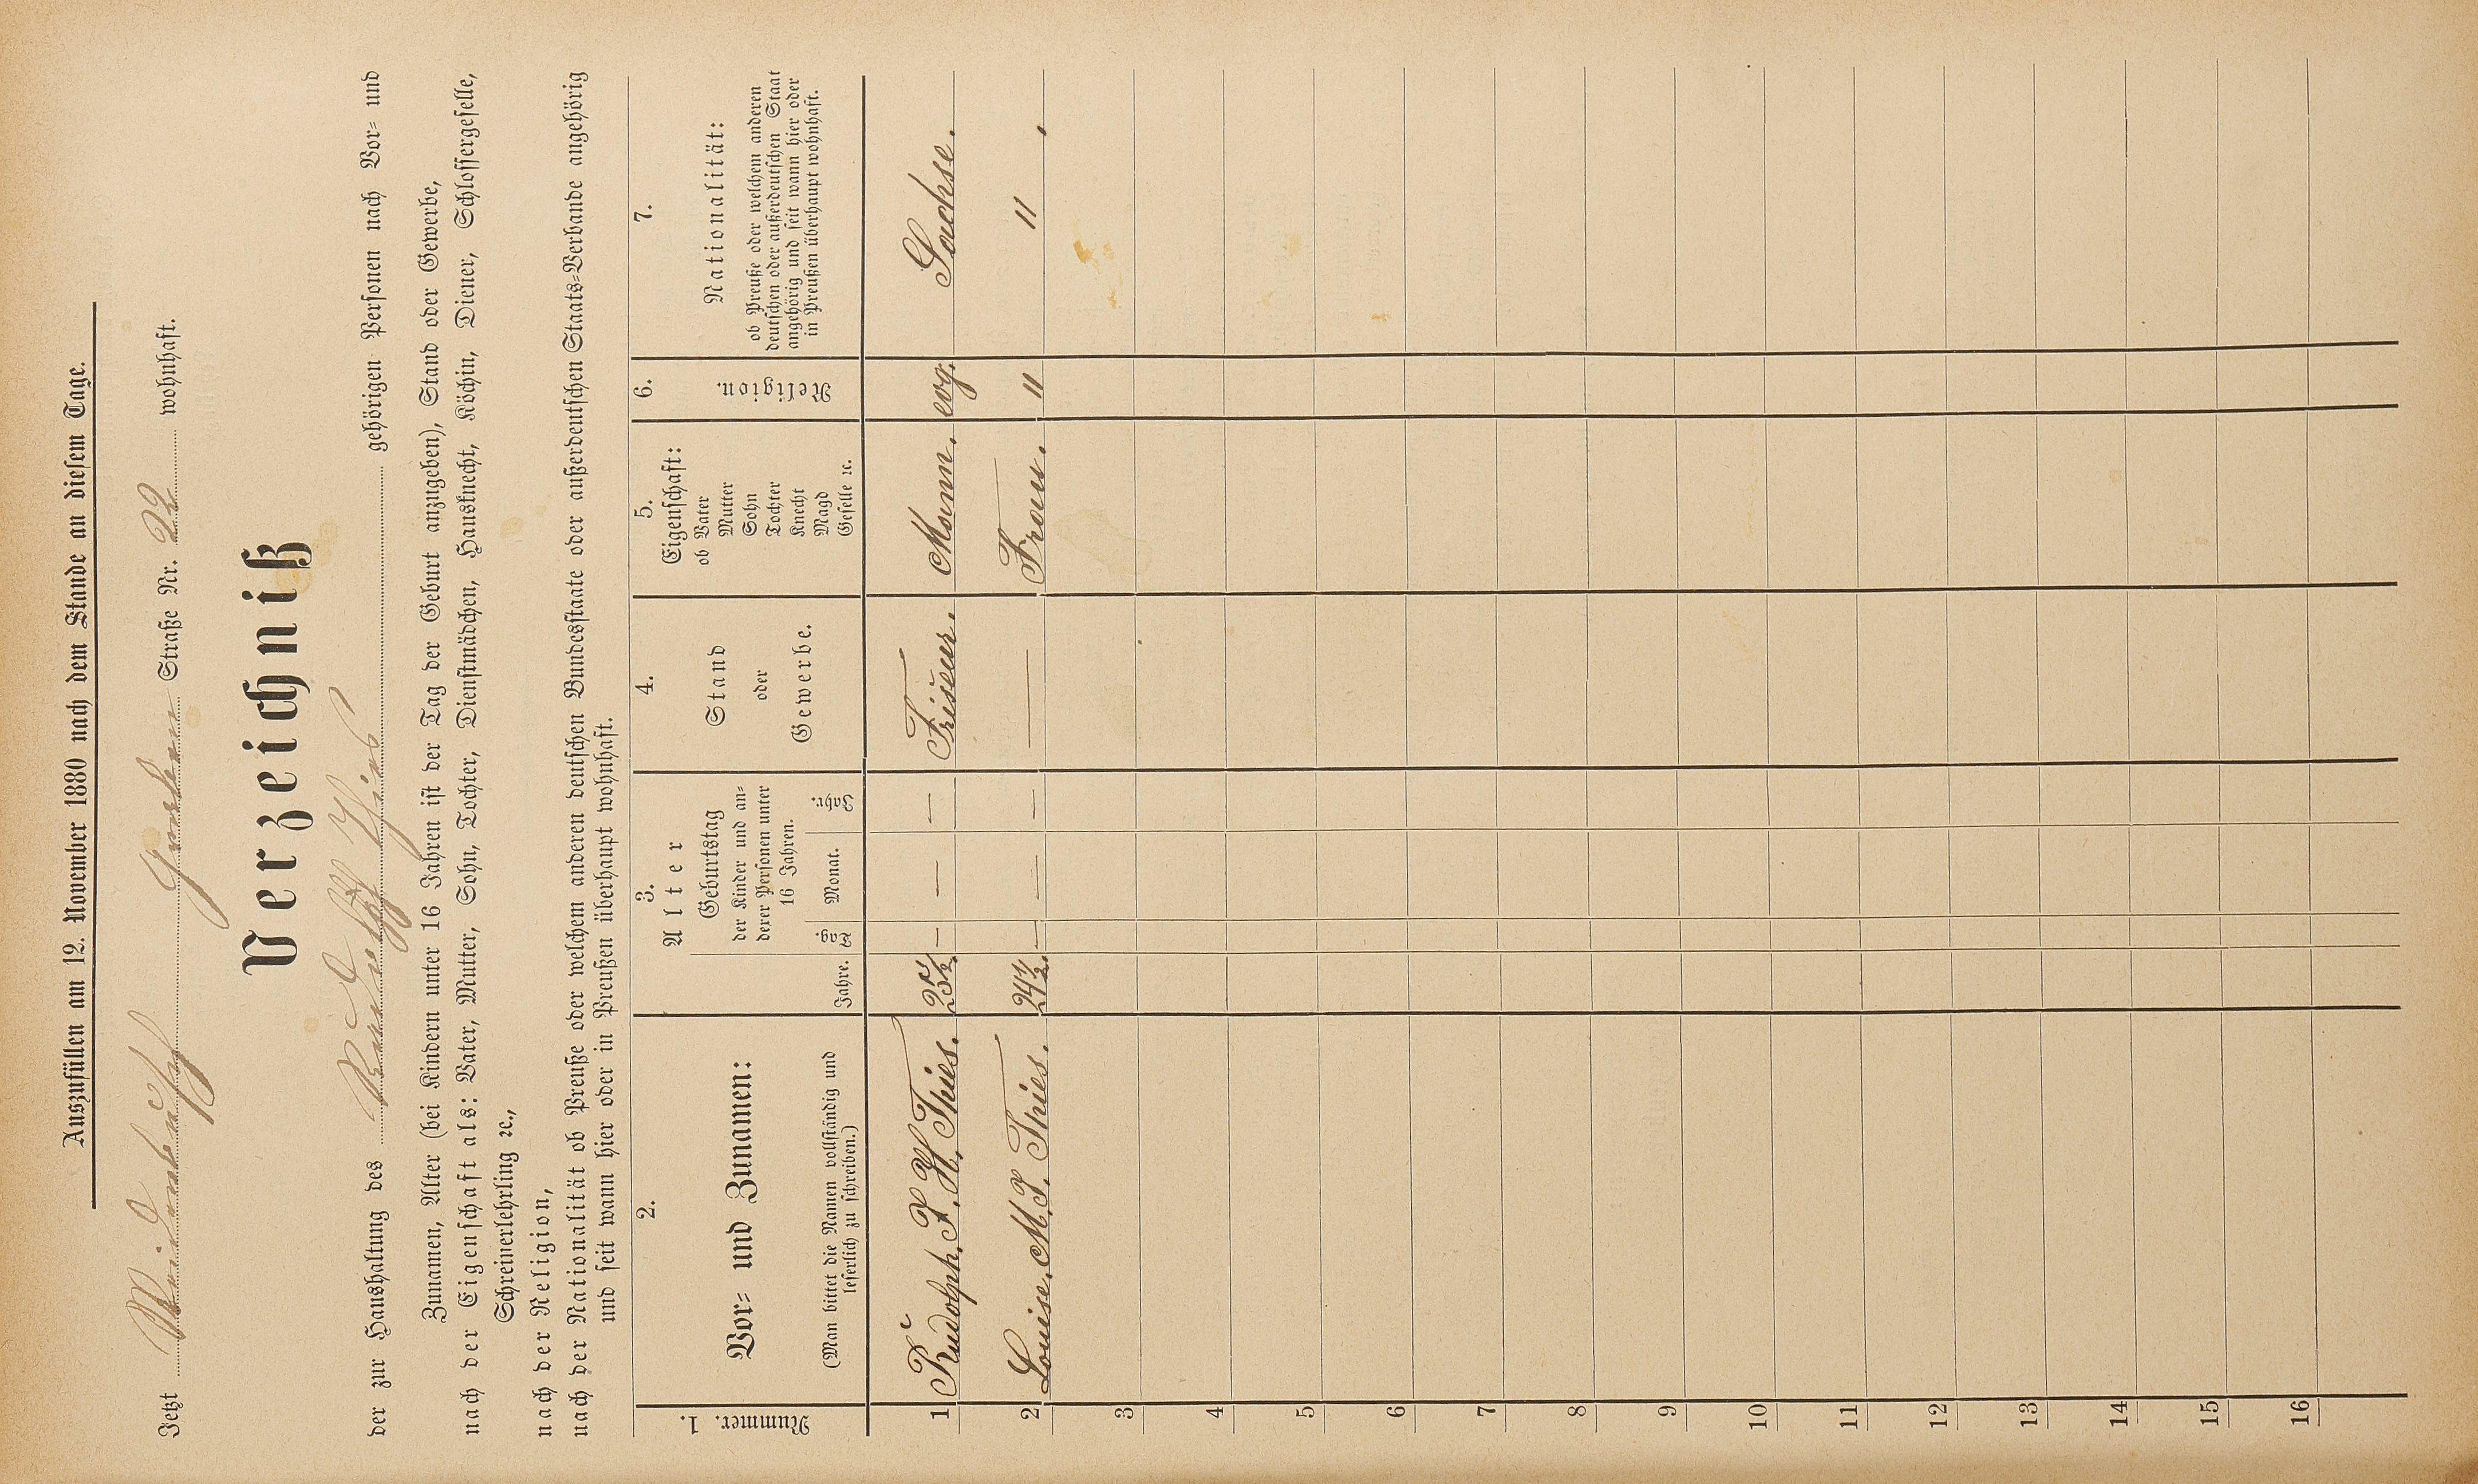 Auszufüllen am 12. November 1880 nach dem Stande an diesem Tage.
Jetzt Garten Straße Nr. 22 wohnhaft.
Verzeichniß
der zur Haushaltung des Rudolph Thies gehörigen Personen nach Vor- und
Zunamen, Alter (bei Kindern unter 16 Jahren ist der Tag der Geburt anzugeben), Stand oder Gewerbe,
nach der Eigenschaft als: Vater, Mutter, Sohn, Tochter, Dienstmädchen, Hausknecht, Köchin, Diener, Schlossergeselle,
Schreinerlehrling ꝛc.,
nach der Religion,
nach der Nationalität ob Preuße oder welchem anderen deutschen Bundesstaate oder außerdeutschen Staats-Verbande angehörig
und seit wann hier oder in Preußen überhaupt wohnhaft.
1.
Nummer.
2.
Vor- und Zunamen:
(Man bittet die Namen vollständig und
leserlich zu schreiben.)
3.
Alter
Jahre.
Geburtstag
der Kinder und an-
derer Personen unter
16 Jahren.
Tag. Monat. Jahr.
4.
Stand
oder
Gewerbe.
5.
Eigenschaft:
ob Vater
Mutter
Sohn
Tochter
Knecht
Magd
Geselle ꝛc.
6.
Religion.
7.
Nationalität:
ob Preuße oder welchem anderen
deutschen oder außerdeutschen Staat
angehörig und seit wann hier oder
in Preußen überhaupt wohnhaft.
1 Rudolph. F. H. Thies. — — — Friseur. Mann. evg. Sachse.
2 Louise. M. F. Thies. 24½. — — — — Frau. " " .
3
4
5
6
7
8
9
10
11
12
13
14
15
16